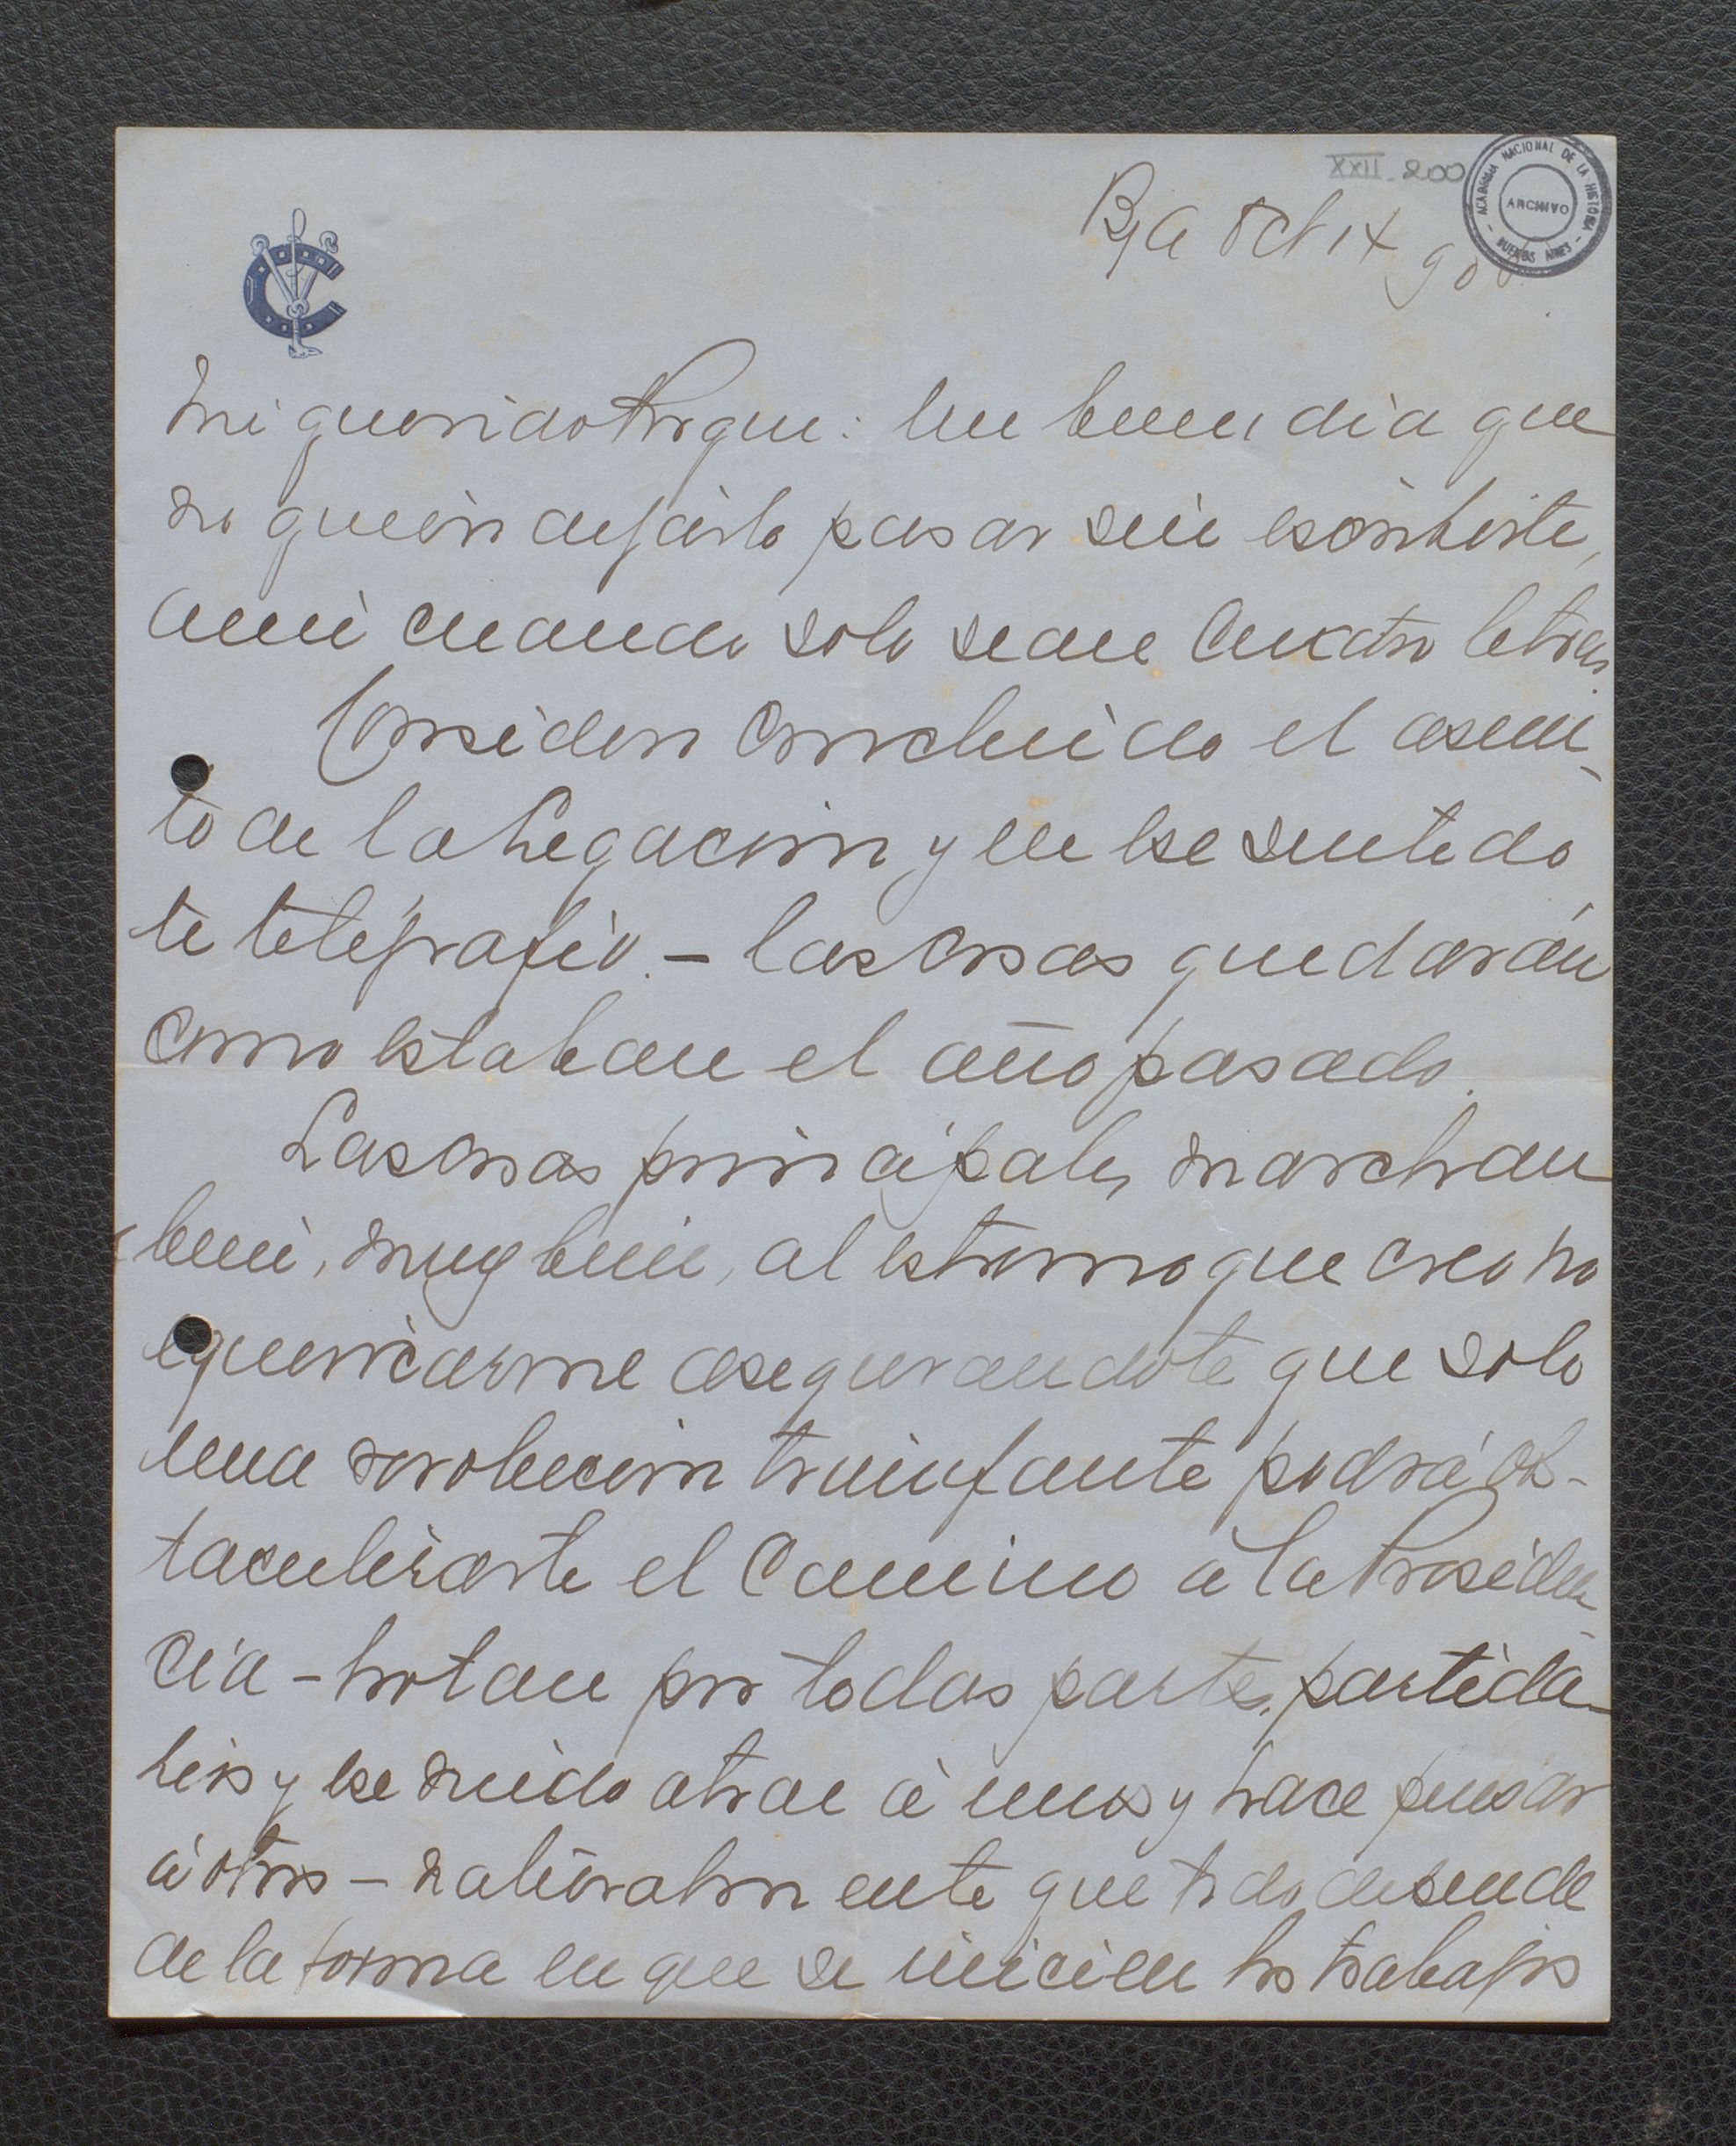 XXII-200
ACADEMIA NACIONAL DE LA HISTORIA
ARCHIVO
BUENOS AIRES
Bs A Oct 14 908
Mi querido Roque: Un buen dia que
no quiero dejarlo pasar sin escribirte,
aun cuando solo sean cuatro letras.
Considero concluido el asun-
to de la Legacion y en ese sentido
te telégrafio. – las cosas quedarán
como estaban el año pasado.
Las cosas principales marchan
bien, muy bien, al estremo que creo no
equivocarme asegurandote que solo
una revolucion triunfante podrá obs-
taculizarte el camino á la Presiden-
cia – brotan por todas partes, partida-
rios y ese ruido atrae á unos y hace pensar
á otros – naturalmente que todo depende
de la forma en que se inicien los trabajos